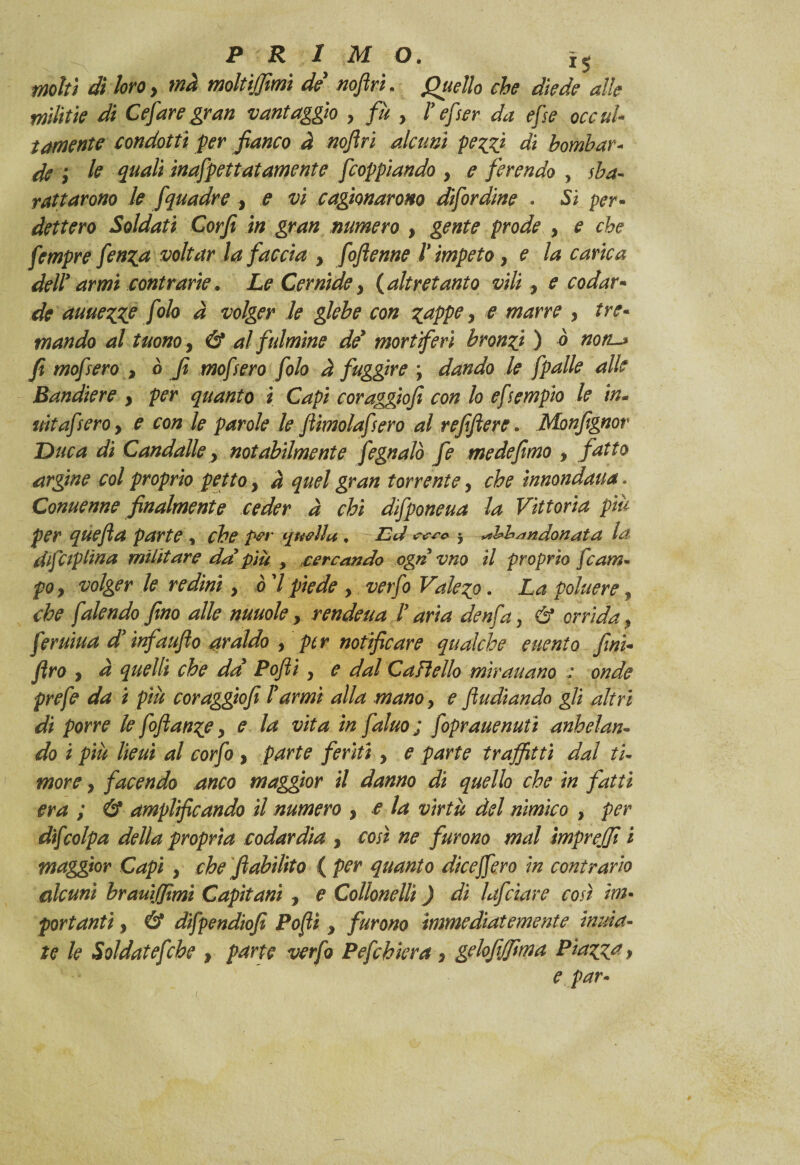 PRIMO. 15
molti di loro, mà moltiſſimi de' noſtri. Quello che diede alle
militie di Ceſare gran vantaggio, fù, l'eſser da eſse occul-
tamente condotti per fianco à noſtri alcuni pezzi di bombar-
de; le quali inaſpettatamente ſcoppiando, e ferendo, sba-
rattarono le ſquadre, e vi cagionarono diſordine. Si per-
dettero Soldati Corſi in gran numero, gente prode, e che
ſempre ſenza voltar la faccia, ſoſtenne l'impeto, e la carica
dell'armi contrarie. Le Cernide, (altretanto vili, e codar-
de auuezze ſolo à volger le glebe con zappe, e marre, tre-
mando al tuono, & al fulmine de' mortiferi bronzi) ò non
ſi moſsero, ò ſi moſsero ſolo à fuggire; dando le ſpalle alle
Bandiere, per quanto i Capi coraggioſi con lo eſsempio le in-
uitaſsero, e con le parole le ſtimolaſsero al reſiſtere. Monſignor
Duca di Candalle, notabilmente ſegnalò ſe medeſimo, fatto
argine col proprio petto, à quel gran torrente, che innondaua.
Conuenne finalmente ceder à chi diſponeua la Vittoria più
per queſta parte, che per quella. Ed ecco, abbandonata la
diſciplina militare da' più, cercando ogn' vno il proprio ſcam-
po, volger le redini, ò 'l piede, verſo Valezo. La poluere,
che ſalendo ſino alle nuuole, rendeua l'aria denſa, & orrida,
ſeruiua d'infauſto araldo, per notificare qualche euento ſini-
ſtro, à quelli che da' Poſti, e dal Caſtello mirauano: onde
preſe da i più coraggioſi l'armi alla mano, e ſtudiando gli altri
di porre le ſoſtanze, e la vita in ſaluo; ſoprauenuti anhelan-
do i più lieui al corſo, parte feriti, e parte traffitti dal ti-
more, facendo anco maggior il danno di quello che in fatti
era; & amplificando il numero, e la virtù del nimico, per
diſcolpa della propria codardia, così ne furono mal impreſſi i
maggior Capi, che ſtabilito (per quanto diceſſero in contrario
alcuni brauiſſimi Capitani, e Collonelli) di laſciare così im-
portanti, & diſpendioſi Poſti, furono immediatemente inuia-
te le Soldateſche, parte verſo Peſchiera, geloſiſſima Piazza,
e par-